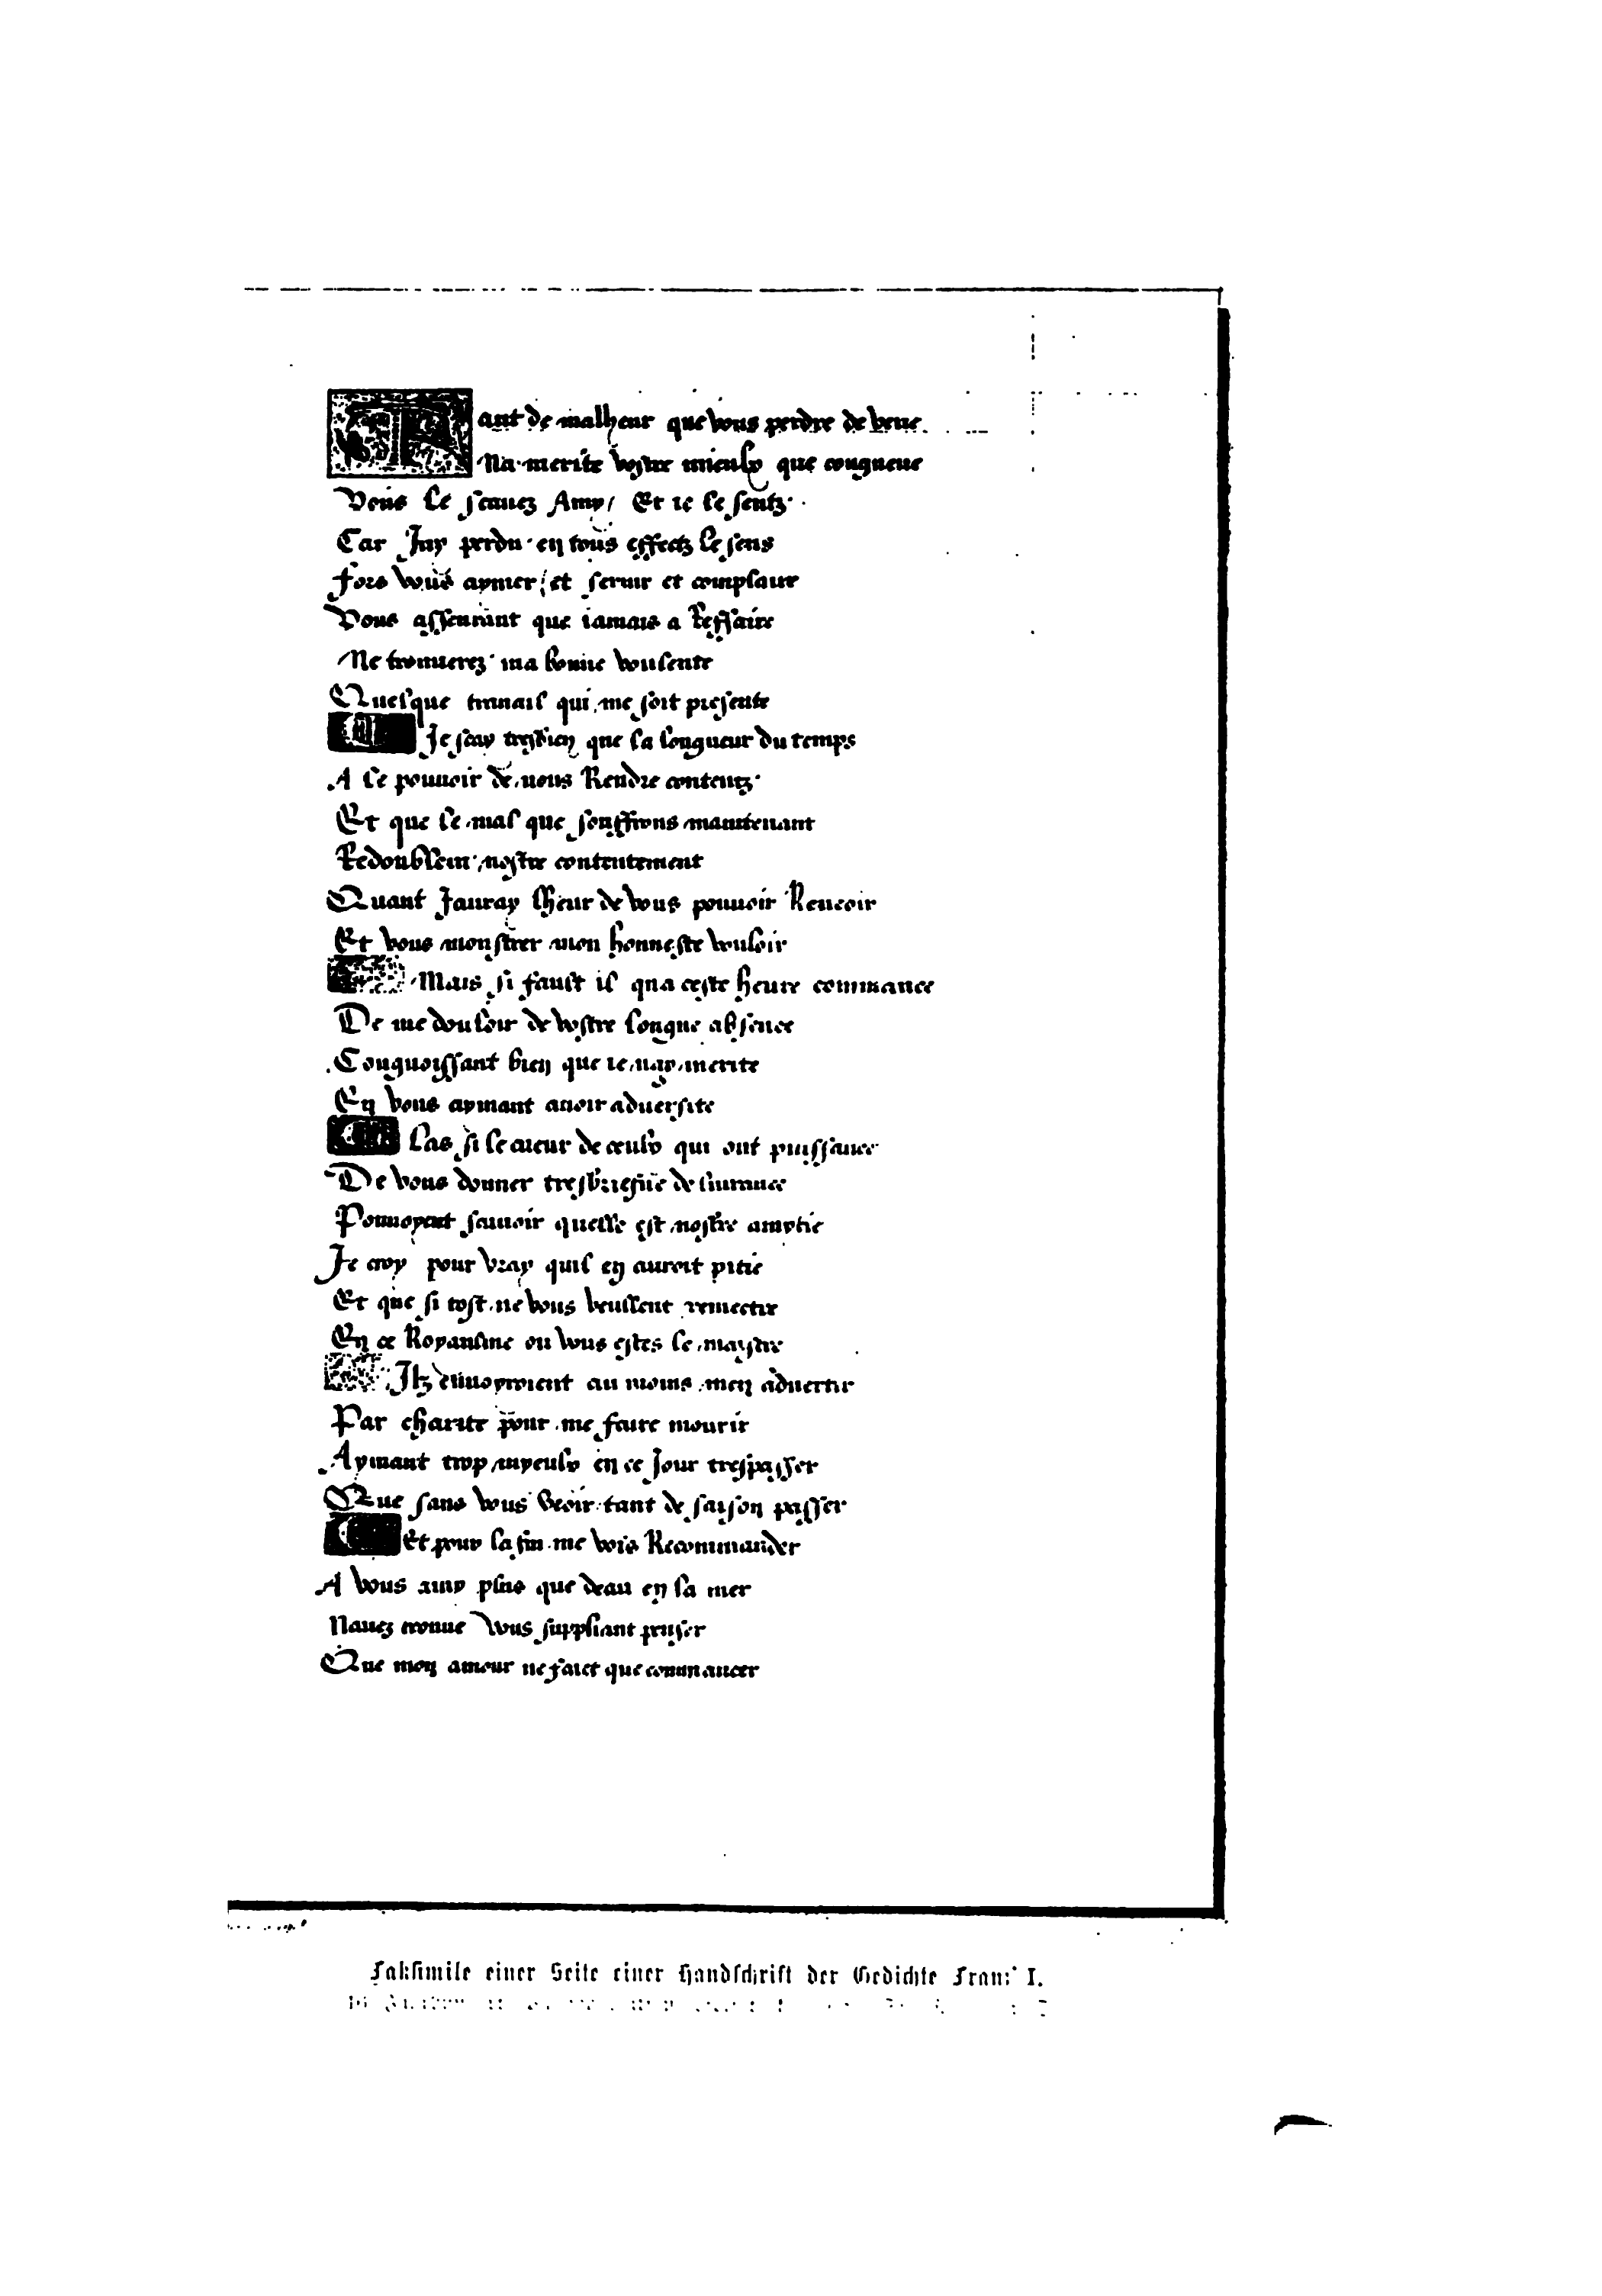 Tant de malheur que vous perdre de veue
Na merite vostre mieulx que congneue
Vous le scauez Amy / Et ie le sentz
Car Jay perdu en tous effectz le sens
fors vous aymer / et seruir et complaire
Vous asseurant que iamais a Reffaire
Ne trouuerez ma bonne voulente
Quelque trauail qui me soit presente
Je scay tresbien que la longueur du temps
A le pouuoir de nous Rendre contentz
Et que le mal que souffrons maintenant
Redoublera nostre contentement
Quant Jauray lheur de vous pouuoir Reueoir
Et vous monstrer mon honneste vouloir
Mais si fault il qua ceste heure commance
De me douloir de vostre longue absence
Congnoissant bien que ie nay merite
En vous aymant auoir aduersite
Las si le cueur de ceulx qui ont puissance
De vous donner tresbriefue deliurance
Pouuoyent scauoir quelle est nostre amytie
Je croy pour vray quil en auroit pitie
Et que si tost ne vous veullent remectre
En ce Royaulme ou vous estes le maystre
Ilz enuoyroient au moins men aduertir
Par charite pour me faire mourir
Aymant trop myeulx en ce Jour trespasser
Que sans vous veoir tant de saison passer
Et pour la fin me vois Recommander
A vous amy plus que deau en la mer
Nauez trouue vous suppliant penser
Que mon amour ne faict que commancer
Faksimile einer Seite einer Handschrift der Gedichte Franz' I.